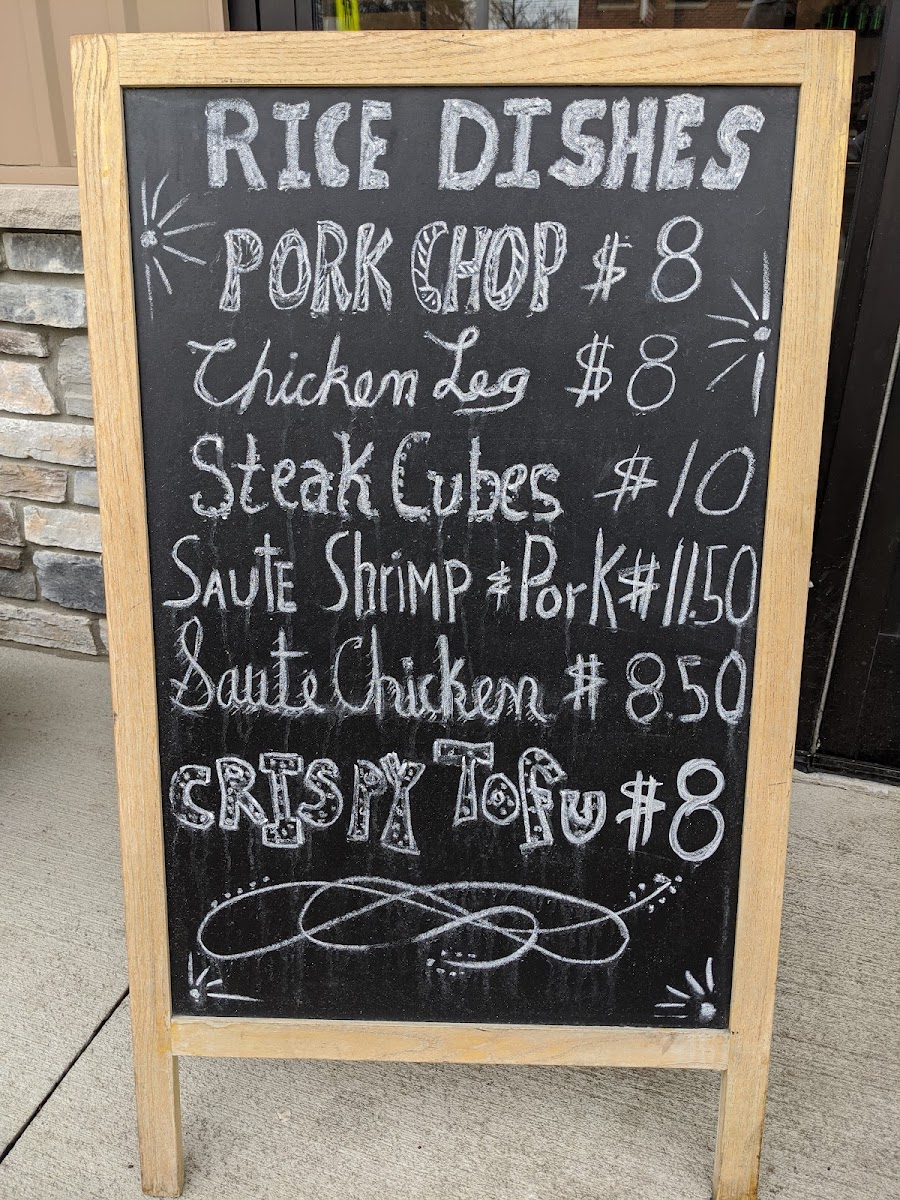 RICE DISHES
PORK CHOP $8
Chicken Leg $8
Steak Cubes $10
SAUTE ShriMP & PorK $11.50
Saute Chicken $8.50
CRISPY ToFu $8